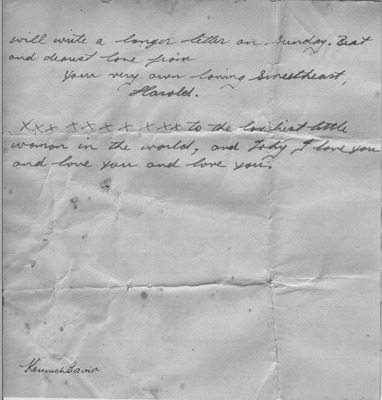 will write a longer letter on Sunday. Best
and dearest love from
your very own loving Sweetheart,
Harold.
xxx x x x x x x x to the loveliest little
woman in the world, and Judy I love you
and love you and love you.
Kenneth David.